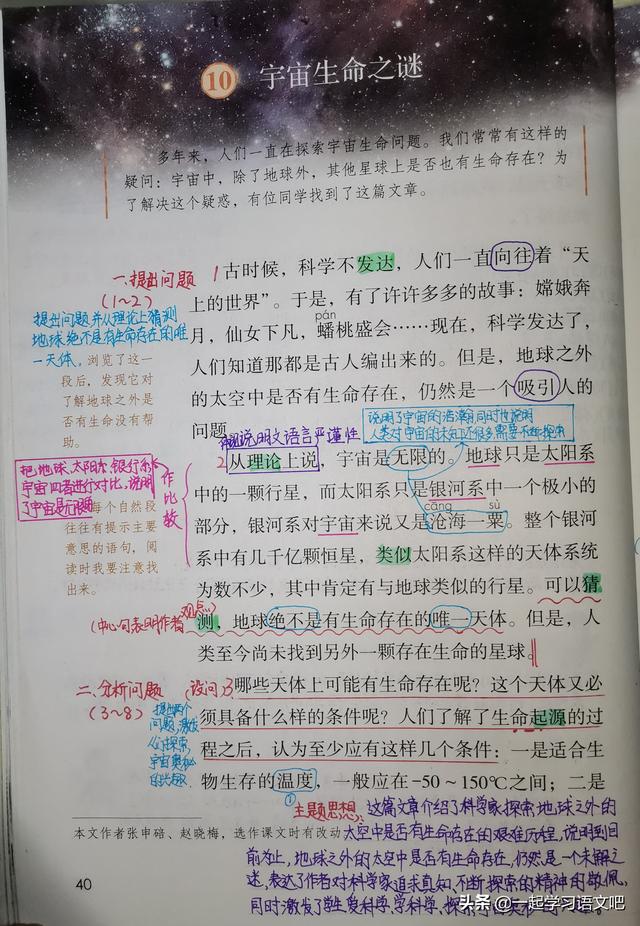 10 宇宙生命之谜
多年来，人们一直在探索宇宙生命问题。我们常常有这样的
疑问：宇宙中，除了地球外，其他星球上是否也有生命存在？为
了解决这个疑惑，有位同学找到了这篇文章。
一.提出问题
(1～2)
提出问题并从理论上猜测
地球绝不是有生命存在的唯
一天体。
浏览了这一
段后，发现它对
了解地球之外是
否有生命没有帮
助。
1古时候，科学不发达，人们一直向往着“天
上的世界”。于是，有了许许多多的故事：嫦娥奔
pán
月，仙女下凡，蟠桃盛会……现在，科学发达了，
人们知道那都是古人编出来的。但是，地球之外
的太空中是否有生命存在，仍然是一个吸引人的
问题。
说明文语言严谨性
说明了宇宙的浩瀚,同时也说明
人类对宇宙的未知还很多需要不断探索
把地球、太阳系、银行系
宇宙四者进行对比,说明
了宇宙是无限的
作比较
每个自然段
往往有提示主要
意思的语句，阅
读时我要注意找
出来。
2从理论上说，宇宙是无限的。地球只是太阳系
中的一颗行星，而太阳系只是银河系中一个极小的
cāng sù
部分，银河系对宇宙来说又是沧海一粟。整个银河
系中有几千亿颗恒星，类似太阳系这样的天体系统
为数不少，其中肯定有与地球类似的行星。可以猜
测，地球绝不是有生命存在的唯一天体。但是，人
类至今尚未找到另外一颗存在生命的星球。
(中心句表明作者观点)
二、分析问题
(3～8)
提出两个
问题,激发
人们探索
宇宙奥秘
的兴趣
(设问)3哪些天体上可能有生命存在呢？这个天体又必
须具备什么样的条件呢？人们了解了生命起源的过
程之后，认为至少应有这样几个条件：一是适合生
物生存的温度，一般应在-50～150℃之间；二是
①
本文作者张申碚、赵晓梅，选作课文时有改动
主题思想:这篇文章介绍了科学家探索地球之外的
太空中是否有生命存在的艰难历程,说明到目
前为止,地球之外的太空中是否有生命存在,仍然是一个未解之
谜,表达了作者对科学家追求真知、不断探索的精神的敬佩,
同时激发了学生爱科学、学科学、探索宇宙奥秘的
40
头条 @一起学习语文吧